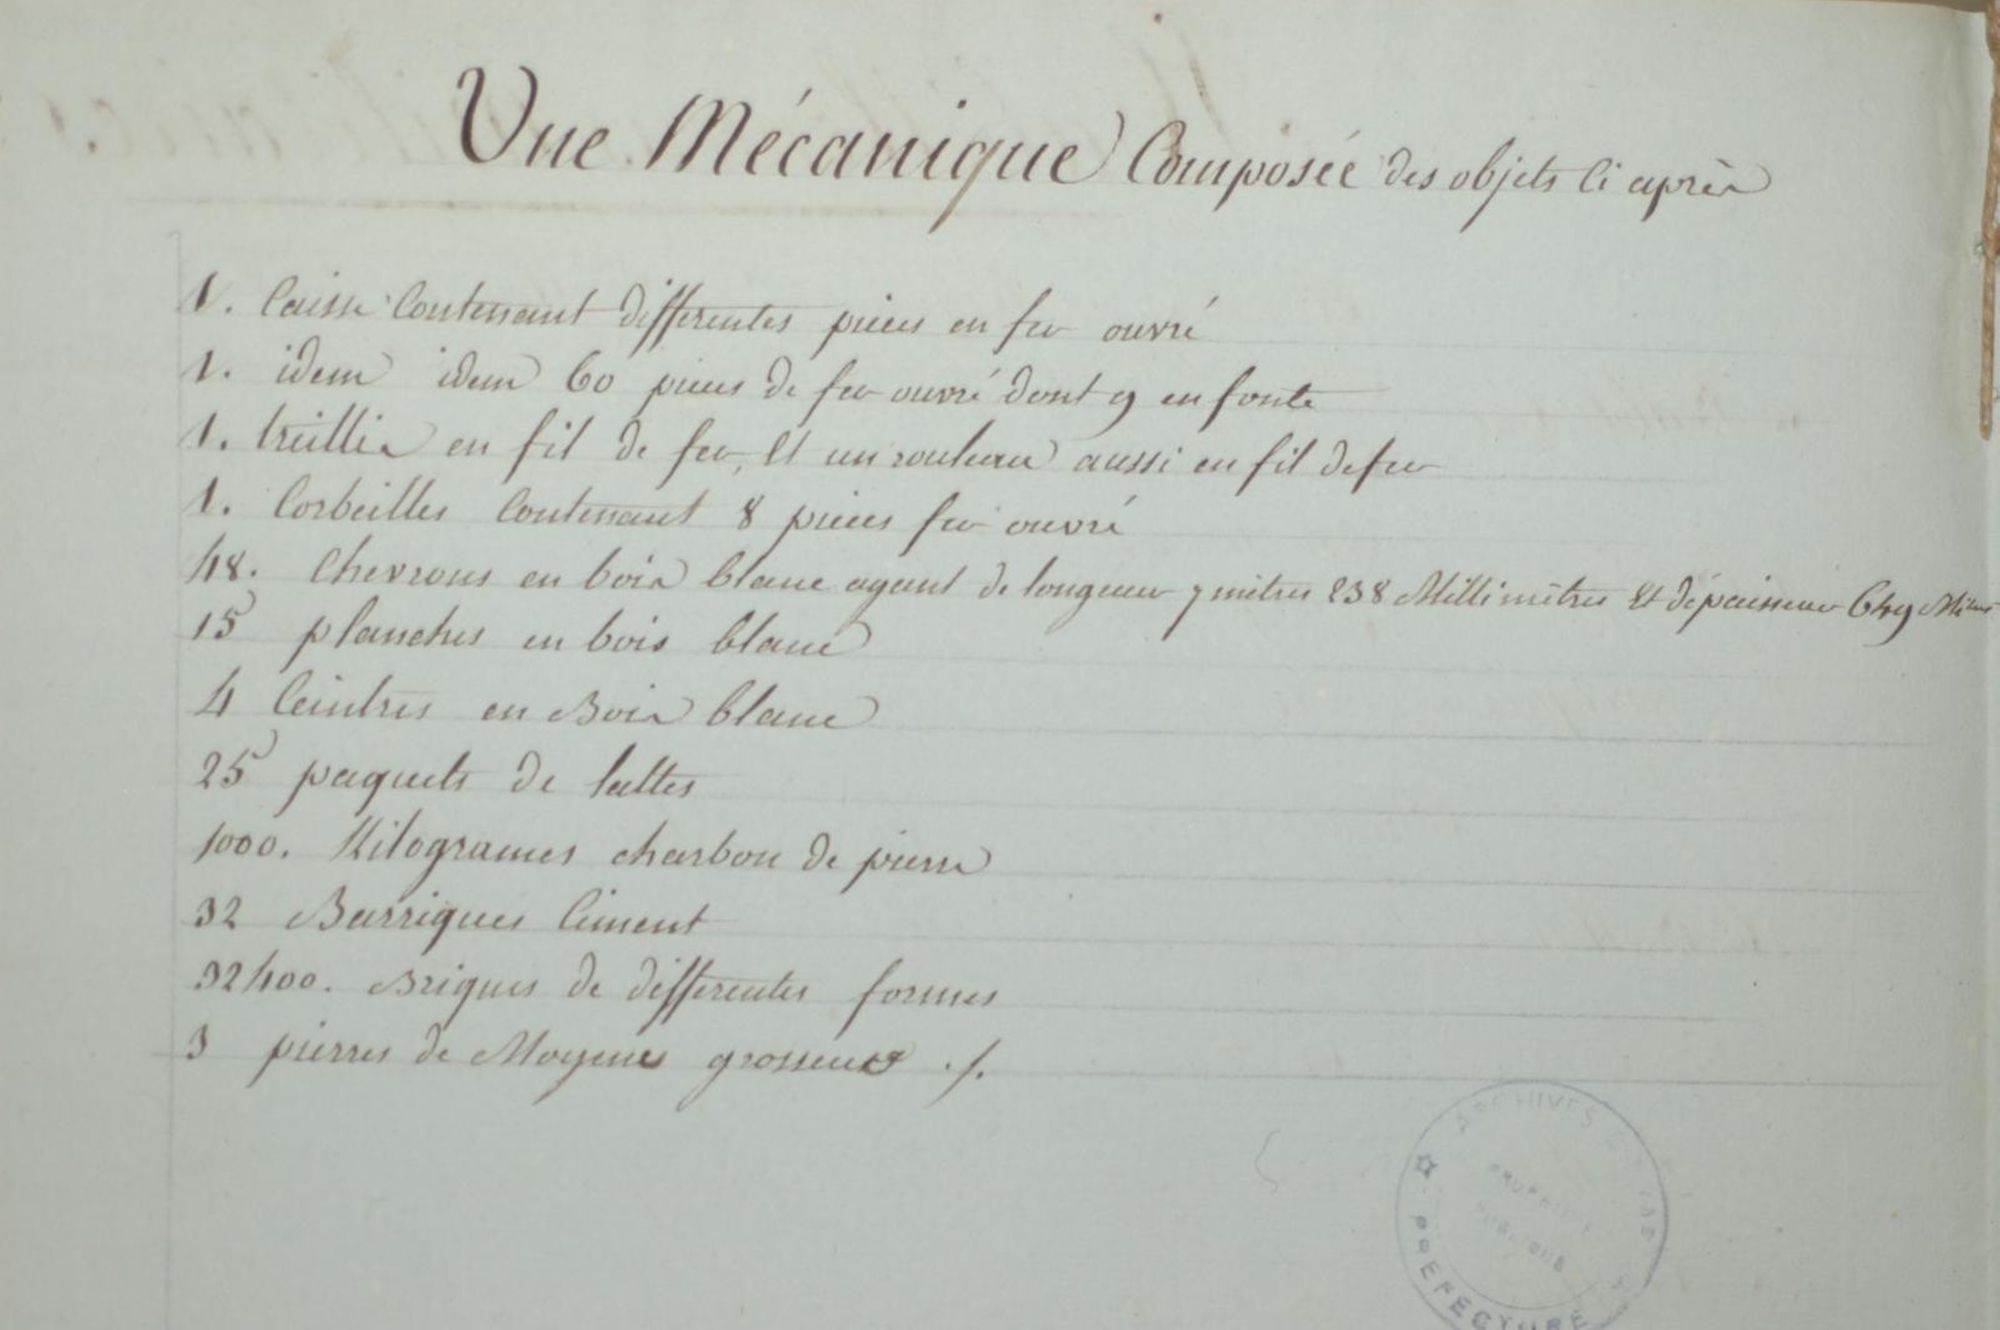 Une Mécanique Composée des objets Ci après
1. Caisse Contenant differentes pieces en fer ouvré
1. idem idem 60 pieces de fer ouvré dont 9 en fonte
1. treillis en fil de fer, Et un rouleau aussi en fil de fer
1. Corbeilles Contenant 8 pieces fer ouvré
48. Chevrons en bois blanc ayant de longueur 7 mètres 238 Millimètres Et dépaisseur
15 planches en bois blanc
4 Ceintres en Bois blanc
25 paquets de lattes
1000. Kilogrames charbon de pierre
32 Barriques Ciment
32400. Briques de differentes formes
3 pierres de Moyenne grosseur ./.
ARCHIVES
PROPRIETE
PUBLIQUE
PREFECTURE